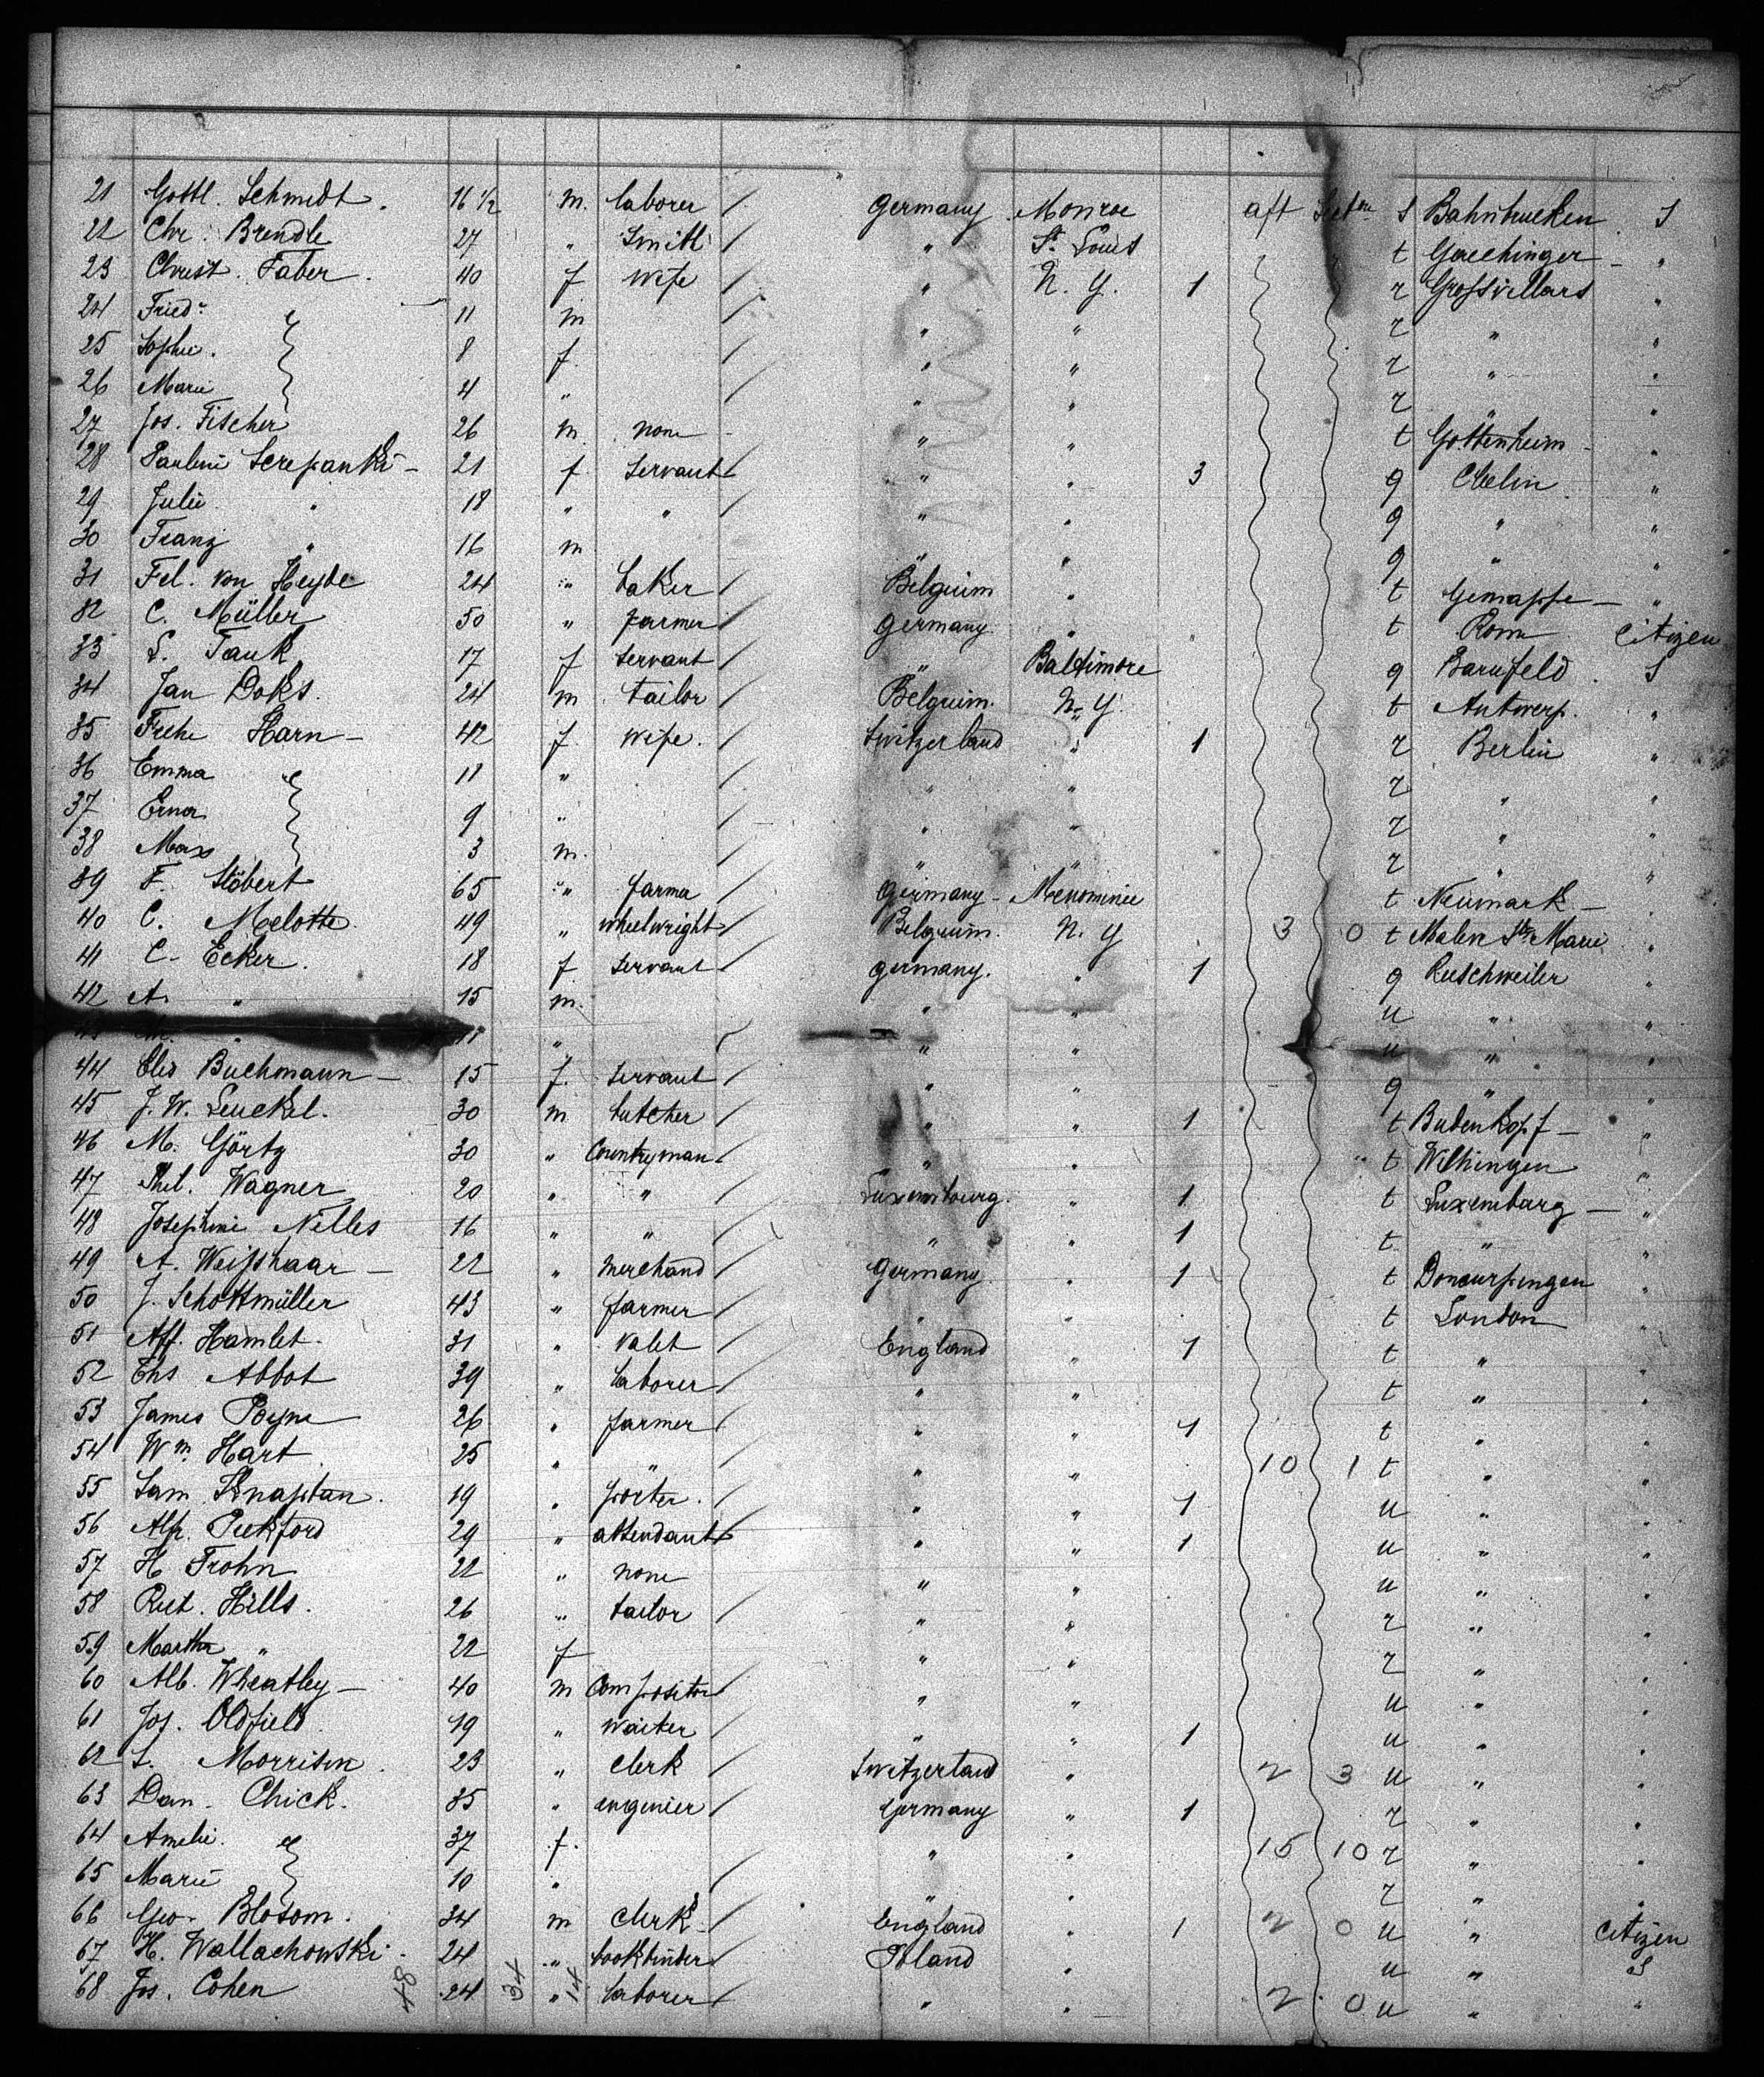 21 Gottl. Schmidt. 16 1/2 m. laborer / Germany Monroe aft s Bahnbrucken S
22 Chr. Brendle 27 " Smith / " St. Louis t Gaechinger - "
23 Christ. Faber. 40 f wife / " N. Y. 1 r Grossvillars "
24 Friedr 11 m / " " r " "
25 Sophie. 8 f. / " " r " "
26 Marie 4 " / " " r " "
27 Jos. Fischer 26 m. none - " " t Gottenheim - "
28 Pauline Screpanki - 21 f Servant / " " 3 g "
29 Julie " 18 " " / " " g " "
30 Franz " 16 m " " g " "
31 Fel. von Heyde 24 " baker / Belgium " t Gemappe - "
32 C. Müller 50 " farmer / Germany " t Rom Citizen
33 L. Tauk 17 f Servant / " Baltimore g Barnfeld. S
34 Jan Doks. 24 m tailor / Belgium. N. Y. t Antwerp. "
35 Harn - 42 f. wife. / Switzerland " 1 r Berlin "
36 Emma 11 " / " " r " "
37 Erna 9 " / " " r " "
38 Max 3 m. / " " r " "
39 F. Stöbert 65 " farma / Germany - Menominee t Neumark - "
40 C. Melotte. 49 " wheelwright / Belgium. N. Y 3 0 t Malen Ste Marie "
41 C. Ecker. 18 f Servant / Germany. " 1 g Rieschweiler "
42 A. " 15 m. " " u " "
43 " 11 " / " " u " "
44 Elis Buchmann - 15 f. Servant / " " g " "
45 J. W. Leuckel. 30 m butcher / " " 1 t Budenkopf - "
46 M. Görtz 30 " Countryman / " " t Wilhingen "
47 Phil. Wagner 20 " " / Luxembourg. " 1 t Luxemburg - "
48 Josephine Nilles 16 " " / " " 1 t " "
49 A. Weisshaar - 22 " merchand / Germany. " 1 t "
50 J. Schottmüller 43 " farmer / " " t London "
51 Alf. Hamlet. 31 " valet / England " 1 t " "
52 Ths Abbot 39 " laborer / " " t " "
53 James Payne 26 " farmer / " " 1 t " "
54 Wm. Hart 25 " " / " " 10 1 t " "
55 Sam. Knaptan. 19 " porter. / " " 1 u " "
56 Alfr. Pickford 29 " attendant / " " 1 u " "
57 H Frohn 22 " none " " u " "
58 Hills. 26 " tailor / " " r " "
59 Martha " 22 f " " r " "
60 Alb. Wheatley - 40 m Compositor / " " u " "
61 Jos. Oldfield 19 " waiter / " " 1 u " "
62 S. Morrison. 23 " clerk / Switzerland " 2 3 u " "
63 Dan. Chick. 35 " engenier / Germany " 1 r " "
64 Amelie. 37 f. " " 15 10 r " "
65 Marie 10 " / " " r " "
66 Geo. Blosom. 34 m clerk / England " 1 2 0 u " Citizen
67 H. Wallachowski. 24 " bookbinder / Poland " u " S
68 Jos. Cohen 24 " laborer / " " 2 0 u " "
48 34 14